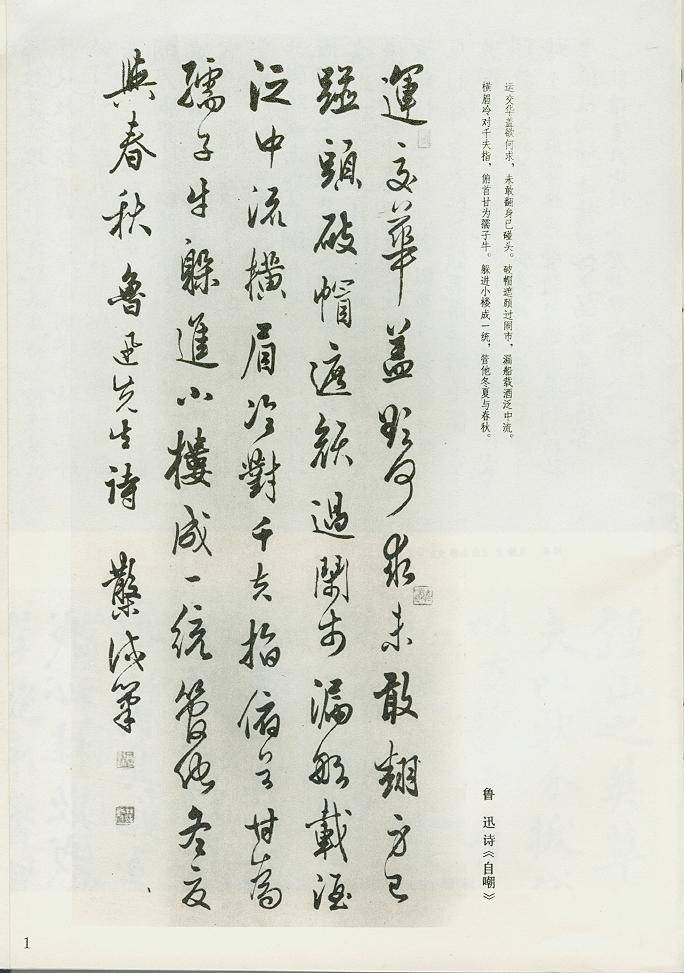 运交华盖欲何求，未敢翻身已碰头。破帽遮颜过闹市，漏船载酒泛中流。
横眉冷对千夫指，俯首甘为孺子牛。躲进小楼成一统，管他冬夏与春秋。
鲁迅诗《自嘲》
運交華蓋欲何求未敢翻身已
踫頭破帽遮顏過鬧市漏船載酒
泛中流橫眉冷對千夫指俯首甘為
孺子牛躲進小樓成一統管他冬夏
與春秋 魯迅先生詩
1